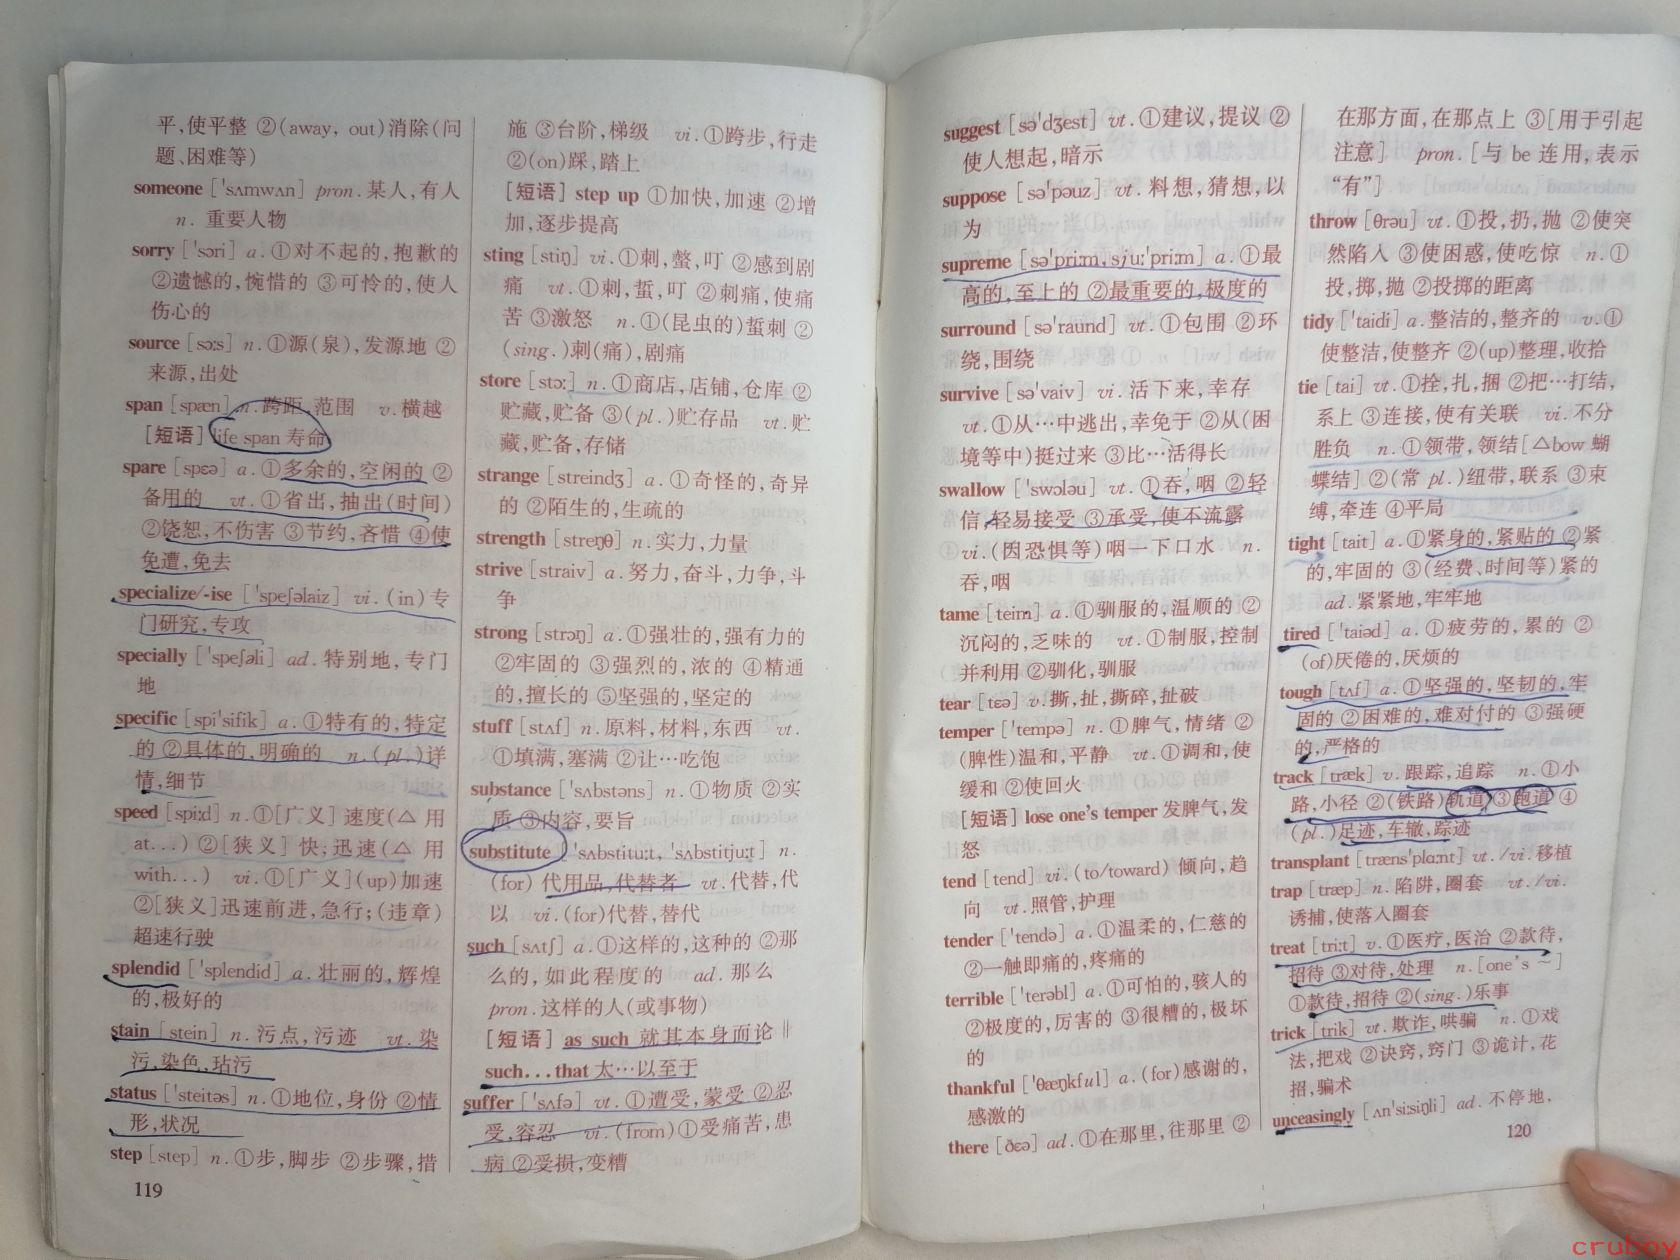 平,使平整 ②(away, out)消除(问
题、困难等)
someone [ˈsʌmwʌn] pron.某人,有人
n. 重要人物
sorry [ˈsɔri] a.①对不起的,抱歉的
②遗憾的,惋惜的 ③可怜的,使人
伤心的
source [sɔːs] n.①源(泉),发源地 ②
来源,出处
span [spæn] n.跨距,范围 v.横越
[短语] life span 寿命
spare [spɛə] a.①多余的,空闲的 ②
备用的 vt.①省出,抽出(时间)
②饶恕,不伤害 ③节约,吝惜 ④使
免遭,免去
specialize/-ise [ˈspeʃəlaiz] vi.(in)专
门研究,专攻
specially [ˈspeʃəli] ad.特别地,专门
地
specific [spiˈsifik] a.①特有的,特定
的 ②具体的,明确的 n.(pl.)详
情,细节
speed [spiːd] n.①[广义] 速度(△ 用
at...) ②[狭义] 快;迅速(△ 用
with...) vi.①[广义](up)加速
②[狭义]迅速前进,急行;(违章)
超速行驶
splendid [ˈsplendid] a.壮丽的,辉煌
的,极好的
stain [stein] n.污点,污迹 vt.染
污,染色,玷污
status [ˈsteitəs] n.①地位,身份 ②情
形,状况
step [step] n.①步,脚步 ②步骤,措
119
施 ③台阶,梯级 vi.①跨步,行走
②(on)踩,踏上
[短语] step up ①加快,加速 ②增
加,逐步提高
sting [stiŋ] vi.①刺,螫,叮 ②感到剧
痛 vt.①刺,蜇,叮 ②刺痛,使痛
苦 ③激怒 n.①(昆虫的)蜇刺 ②
(sing.)刺(痛),剧痛
store [stɔː] n.①商店,店铺,仓库 ②
贮藏,贮备 ③(pl.)贮存品 vt.贮
藏,贮备,存储
strange [streindʒ] a.①奇怪的,奇异
的 ②陌生的,生疏的
strength [streŋθ] n.实力,力量
strive [straiv] a.努力,奋斗,力争,斗
争
strong [strɔŋ] a.①强壮的,强有力的
②牢固的 ③强烈的,浓的 ④精通
的,擅长的 ⑤坚强的,坚定的
stuff [stʌf] n.原料,材料,东西 vt.
①填满,塞满 ②让…吃饱
substance [ˈsʌbstəns] n.①物质 ②实
质 ③内容,要旨
substitute [ˈsʌbstituːt, ˈsʌbstitjuːt] n.
(for) 代用品,代替者 vt.代替,代
以 vi.(for)代替,替代
such [sʌtʃ] a.①这样的,这种的 ②那
么的,如此程度的 ad.那么
pron.这样的人(或事物)
[短语] as such 就其本身而论 ‖
such...that 太…以至于
suffer [ˈsʌfə] vt.①遭受,蒙受 ②忍
受,容忍 vi.(from)①受痛苦,患
病 ②受损,变糟
suggest [səˈdʒest] vt.①建议,提议 ②
使人想起,暗示
suppose [səˈpəuz] vt.料想,猜想,以
为
supreme [səˈpriːm, sjuːˈpriːm] a.①最
高的,至上的 ②最重要的,极度的
surround [səˈraund] vt.①包围 ②环
绕,围绕
survive [səˈvaiv] vi.活下来,幸存
vt.①从…中逃出,幸免于 ②从(困
境等中)挺过来 ③比…活得长
swallow [ˈswɔləu] vt.①吞,咽 ②轻
信,轻易接受 ③承受,使不流露
vi.(因恐惧等)咽一下口水 n.
吞,咽
tame [teim] a.①驯服的,温顺的 ②
沉闷的,乏味的 vt.①制服,控制
并利用 ②驯化,驯服
tear [tɛə] v.撕,扯,撕碎,扯破
temper [ˈtempə] n.①脾气,情绪 ②
(脾性)温和,平静 vt.①调和,使
缓和 ②使回火
[短语] lose one's temper 发脾气,发
怒
tend [tend] vi.(to/toward) 倾向,趋
向 vt.照管,护理
tender [ˈtendə] a.①温柔的,仁慈的
②一触即痛的,疼痛的
terrible [ˈterəbl] a.①可怕的,骇人的
②极度的,厉害的 ③很糟的,极坏
的
thankful [ˈθæŋkful] a.(for)感谢的,
感激的
there [ðɛə] ad.①在那里,往那里 ②
在那方面,在那点上 ③[用于引起
注意] pron.[与 be 连用,表示
“有”]
throw [θrəu] vt.①投,扔,抛 ②使突
然陷入 ③使困惑,使吃惊 n.①
投,掷,抛 ②投掷的距离
tidy [ˈtaidi] a.整洁的,整齐的 v.①
使整洁,使整齐 ②(up)整理,收拾
tie [tai] vt.①拴,扎,捆 ②把…打结,
系上 ③连接,使有关联 vi.不分
胜负 n.①领带,领结[△bow 蝴
蝶结] ②(常 pl.)纽带,联系 ③束
缚,牵连 ④平局
tight [tait] a.①紧身的,紧贴的 ②紧
的,牢固的 ③(经费、时间等)紧的
ad.紧紧地,牢牢地
tired [ˈtaiəd] a.①疲劳的,累的 ②
(of)厌倦的,厌烦的
tough [tʌf] a.①坚强的,坚韧的,牢
固的 ②困难的,难对付的 ③强硬
的,严格的
track [træk] v.跟踪,追踪 n.①小
路,小径 ②(铁路)轨道 ③跑道 ④
(pl.)足迹,车辙,踪迹
transplant [trænsˈplɑːnt] vt./vi.移植
trap [træp] n.陷阱,圈套 vt./vi.
诱捕,使落入圈套
treat [triːt] v.①医疗,医治 ②款待,
招待 ③对待,处理 n.[one's ~]
①款待,招待 ②(sing.)乐事
trick [trik] vt.欺诈,哄骗 n.①戏
法,把戏 ②诀窍,窍门 ③诡计,花
招,骗术
unceasingly [ʌnˈsiːsiŋli] ad.不停地,
120
cruboy